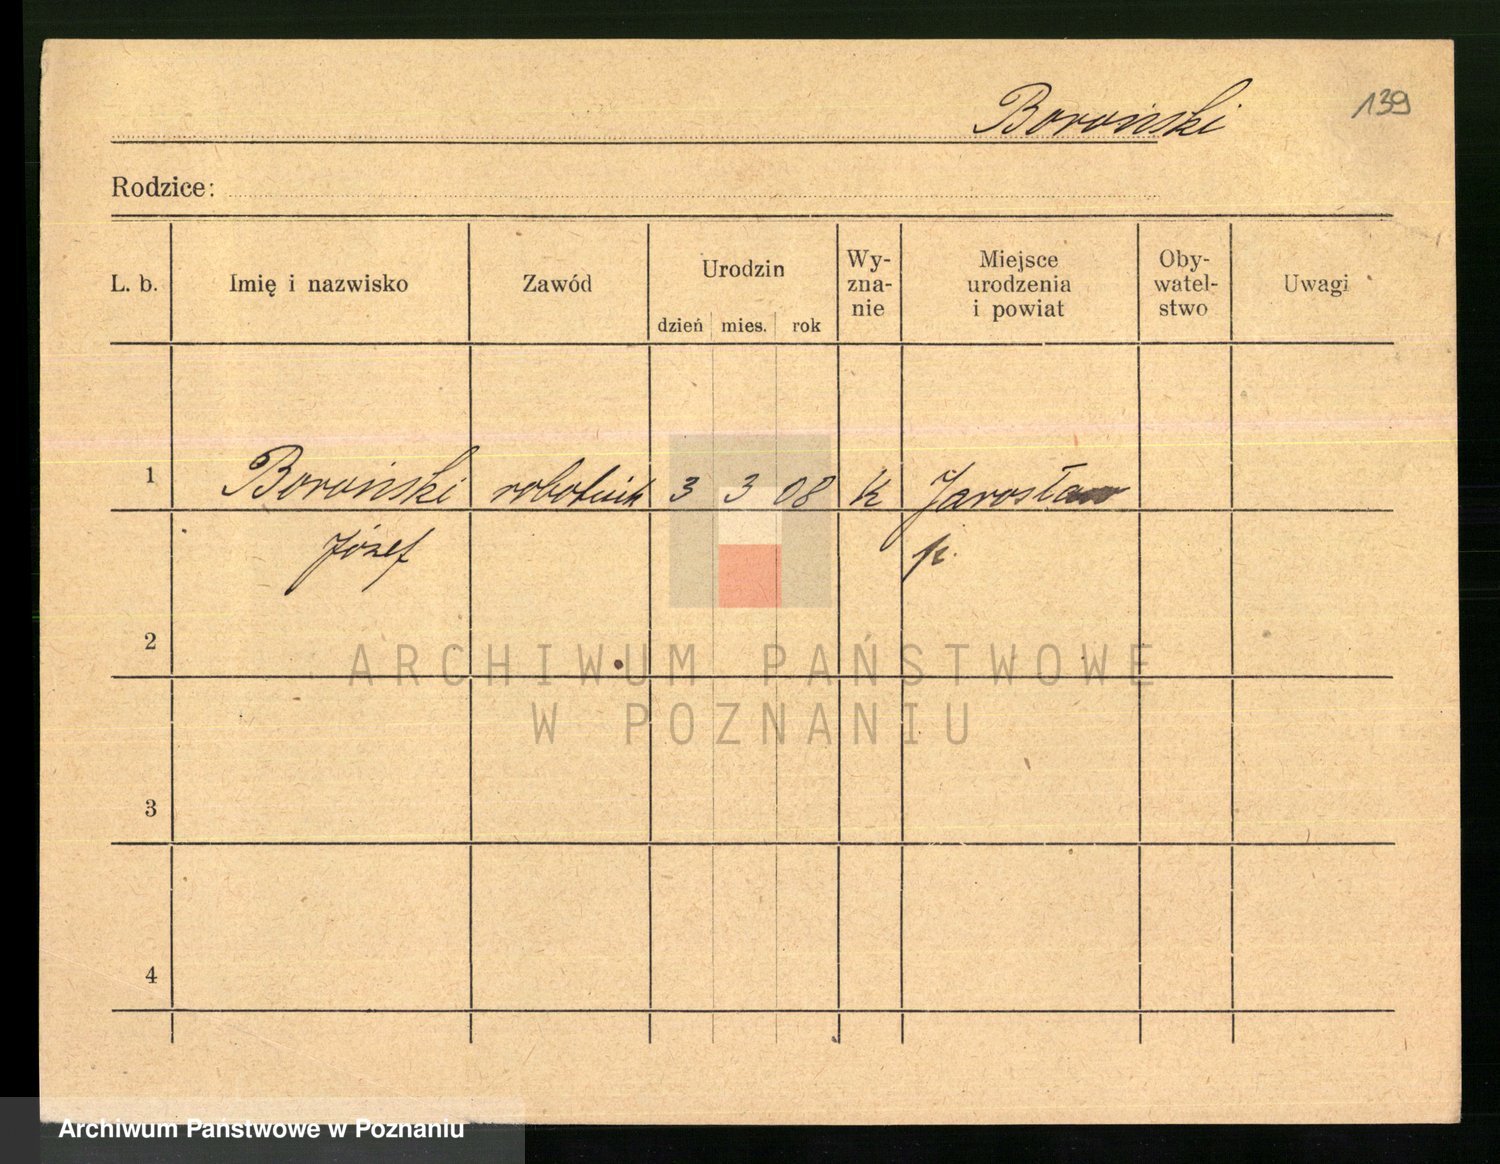 Boroński
139
Rodzice:
L. b. Imię i nazwisko Zawód Urodzin dzień mies. rok Wy-zna-nie Miejsce urodzenia i powiat Oby-watel-stwo Uwagi
1 Boroński robotnik 3 3 08 k Jarosław
Józef p.
2
3
4
ARCHIWUM PAŃSTWOWE
W POZNANIU
Archiwum Państwowe w Poznaniu